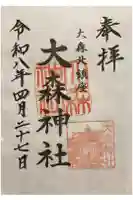 奉拝
大森北鎮座
大森神社
令和八年四月二十七日